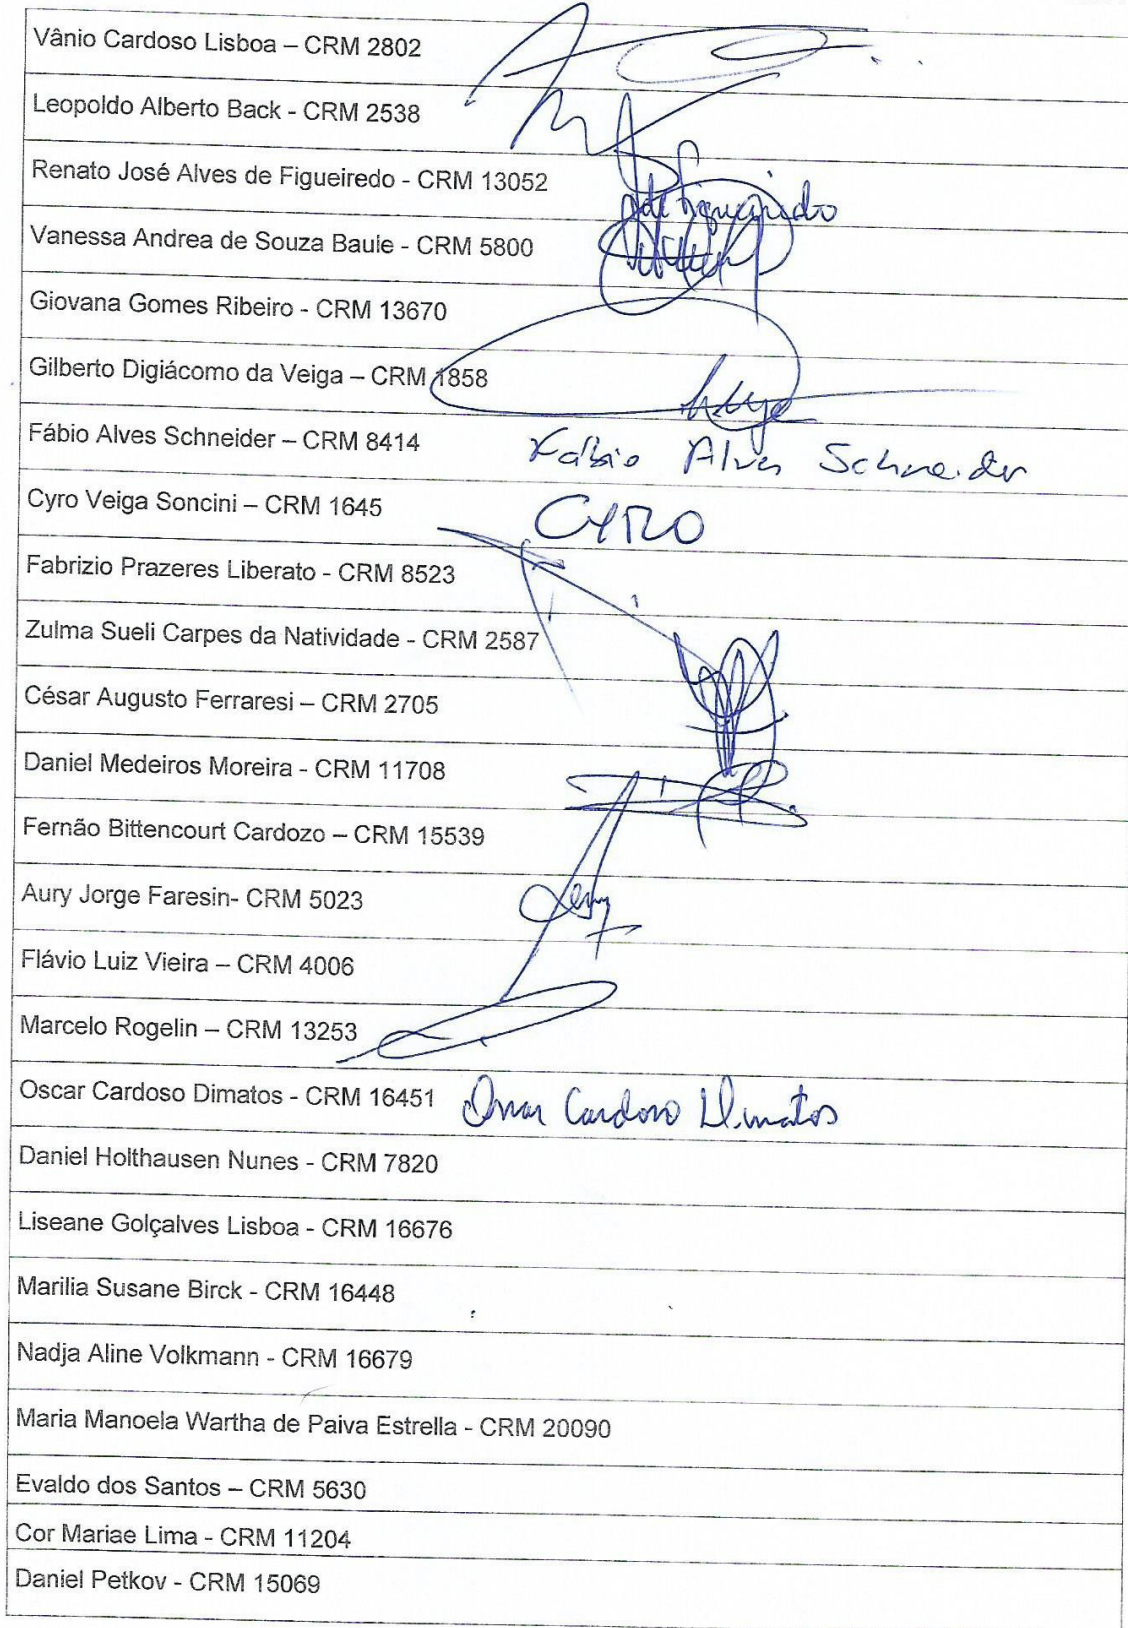 Vânio Cardoso Lisboa – CRM 2802
Leopoldo Alberto Back - CRM 2538
Renato José Alves de Figueiredo - CRM 13052
de Figueiredo
Vanessa Andrea de Souza Baule - CRM 5800
Giovana Gomes Ribeiro - CRM 13670
Gilberto Digiácomo da Veiga – CRM 1858
Fábio Alves Schneider – CRM 8414 Fábio Alves Schneider
Cyro Veiga Soncini – CRM 1645 CYRO
Fabrizio Prazeres Liberato - CRM 8523
Zulma Sueli Carpes da Natividade - CRM 2587
César Augusto Ferraresi – CRM 2705
Daniel Medeiros Moreira - CRM 11708
Fernão Bittencourt Cardozo – CRM 15539
Aury Jorge Faresin- CRM 5023
Flávio Luiz Vieira – CRM 4006
Marcelo Rogelin – CRM 13253
Oscar Cardoso Dimatos - CRM 16451 Oscar Cardoso Dimatos
Daniel Holthausen Nunes - CRM 7820
Liseane Golçalves Lisboa - CRM 16676
Marilia Susane Birck - CRM 16448
Nadja Aline Volkmann - CRM 16679
Maria Manoela Wartha de Paiva Estrella - CRM 20090
Evaldo dos Santos – CRM 5630
Cor Mariae Lima - CRM 11204
Daniel Petkov - CRM 15069